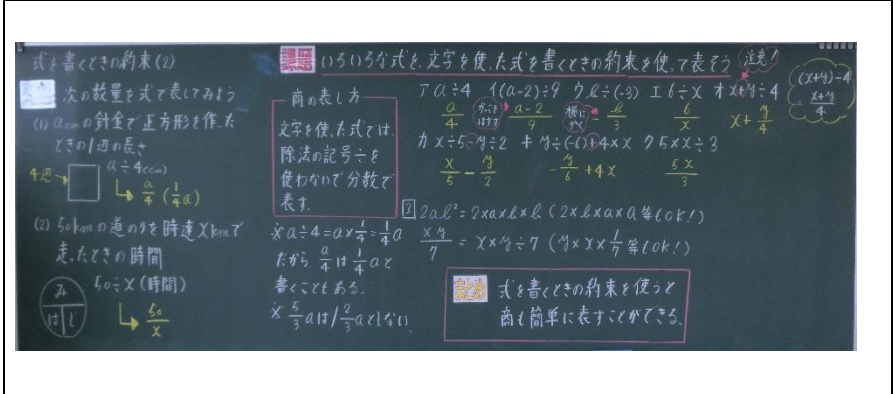 式を書くときの約束(2)
次の数量を式で表してみよう
(1) acmの針金で正方形を作った
ときの1辺の長さ
4辺
a÷4(cm)
a/4 (1/4 a)
(2) 50kmの道のりを時速xkmで
走ったときの時間
み
は じ
50÷x(時間)
50/x
課題 いろいろな式を、文字を使った式を書くときの約束を使って表そう
注意!
商の表し方
文字を使った式では、
除法の記号÷を
使わないで分数で
表す。
※ a÷4=a×1/4=1/4 a
だから a/4 は 1/4 a と
書くこともある。
※ 5/3 a は 1 2/3 a としない。
ア a÷4 イ (a-2)÷9 ウ b÷(-3) エ 6÷x オ x+y÷4
a/4 かっこをはずす a-2/9 横にかく -b/3 6/x x+y/4
(x+y)÷4
x+y/4
カ x÷5-y÷2 キ y÷(-6)+4×x ク 5×x÷3
x/5 - y/2 -y/6 +4x 5x/3
3 2ab²=2×a×b×b (2×b×a×a等もOK!)
xy/7 = x×y÷7 (y×x×1/7 等もOK!)
まとめ 式を書くときの約束を使うと
商も簡単に表すことができる。